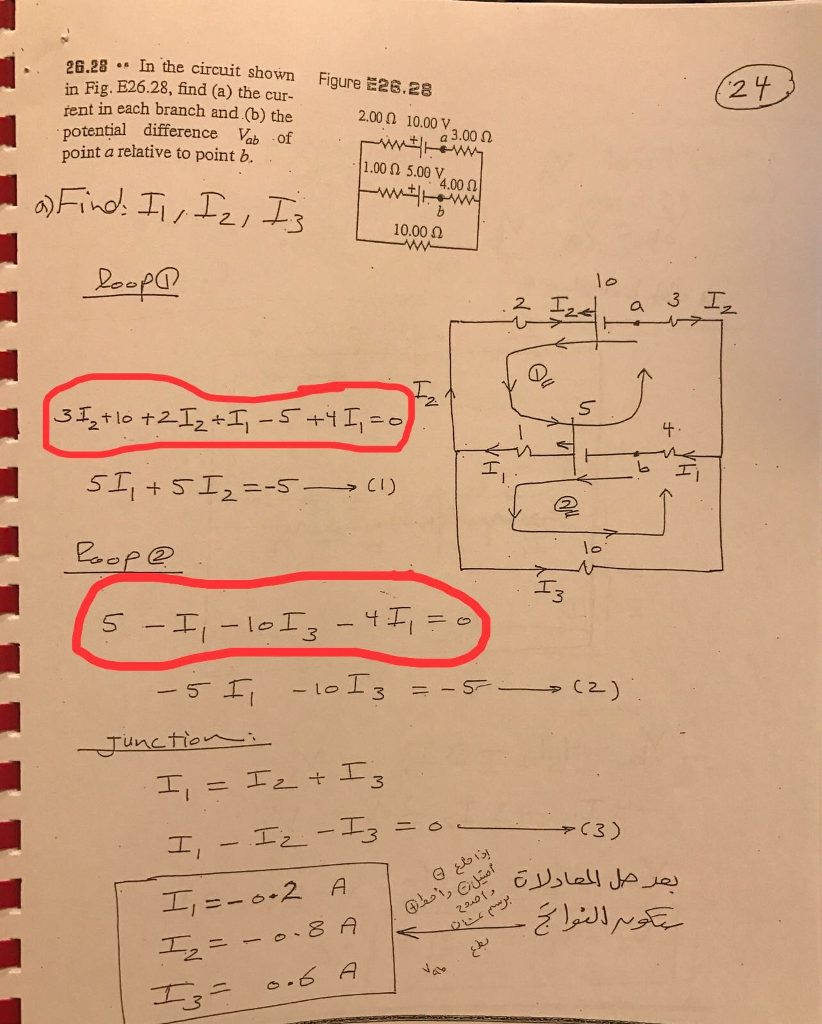 26.28 •• In the circuit shown
in Fig. E26.28, find (a) the cur-
rent in each branch and (b) the
potential difference Vab of
point a relative to point b.
Figure E26.28
2.00 Ω 10.00 V
+ a 3.00 Ω
1.00 Ω 5.00 V
+ 4.00 Ω
b
10.00 Ω
24
a) Find: I₁, I₂, I₃
Loop ①
3I₂+10+2I₂+I₁-5+4I₁=0
5I₁+5I₂=-5 → (1)
Loop ②
5-I₁-10I₃-4I₁=0
-5I₁ -10I₃ = -5 → (2)
Junction:
I₁ = I₂ + I₃
I₁ - I₂ - I₃ = 0 → (3)
I₁ = -0.2 A
I₂ = -0.8 A
I₃ = 0.6 A
10
2 I₂ a 3 I₂
I₂
①
5
1 4
I₁ b I₁
②
10
I₃
بعد حل المعادلات
ستكون النواتج
إذا طلع ⊖
Vab